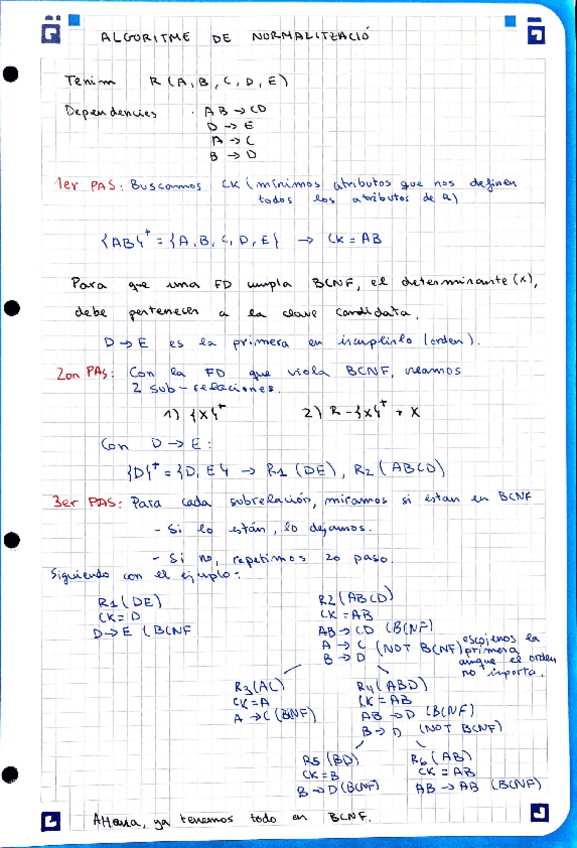 ALGORITME DE NORMALITZACIÓ
Tenim R(A,B,C,D,E)
Dependencies · AB → CD
D → E
A → C
B → D
1er PAS: Buscamos CK (mínimos atributos que nos definen
todos los atributos de R)
{AB}⁺ = {A,B,C,D,E} → CK = AB
Para que una FD cumpla BCNF, el determinante (X),
debe pertenecer a la clave candidata.
D → E es la primera en incumplirlo (orden).
2on PAS: Con la FD que viola BCNF, creamos
2 sub-relaciones.
1) {X}⁺ 2) R - {X}⁺ + X
Con D → E:
{D}⁺ = {D, E} → R1 (DE), R2 (ABCD)
3er PAS: Para cada subrelación, miramos si estan en BCNF
- Si lo están, lo dejamos.
- Si no, repetimos 2o paso.
Siguiendo con el ejemplo:
R1 (DE)
CK = D
D → E (BCNF
R2 (ABCD)
CK = AB
AB → CD (BCNF)
A → C (NOT BCNF)
B → D
escojemos la
primera
aunque el orden
no importa.
R3 (AC)
CK = A
A → C (BCNF)
R4 (ABD)
CK = AB
AB → D (BCNF)
B → D (NOT BCNF)
R5 (BD)
CK = B
B → D (BCNF)
R6 (AB)
CK = AB
AB → AB (BCNF)
AHora, ya tenemos todo en BCNF.